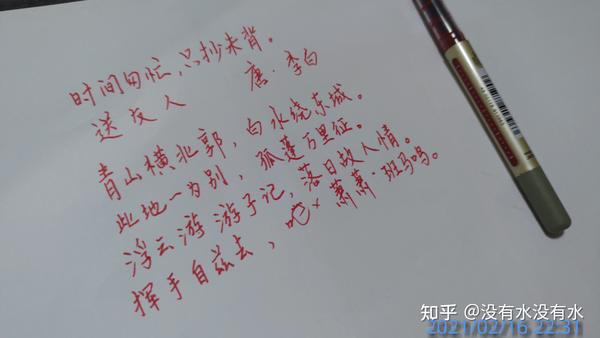 时间匆忙,只抄未背。
送友人 唐·李白
青山横北郭,白水绕东城。
此地一为别,孤蓬万里征。
浮云游游子记,落日故人情。
挥手自兹去,吧×萧萧·班马鸣。
知乎 @没有水没有水
2021/02/16 22:31